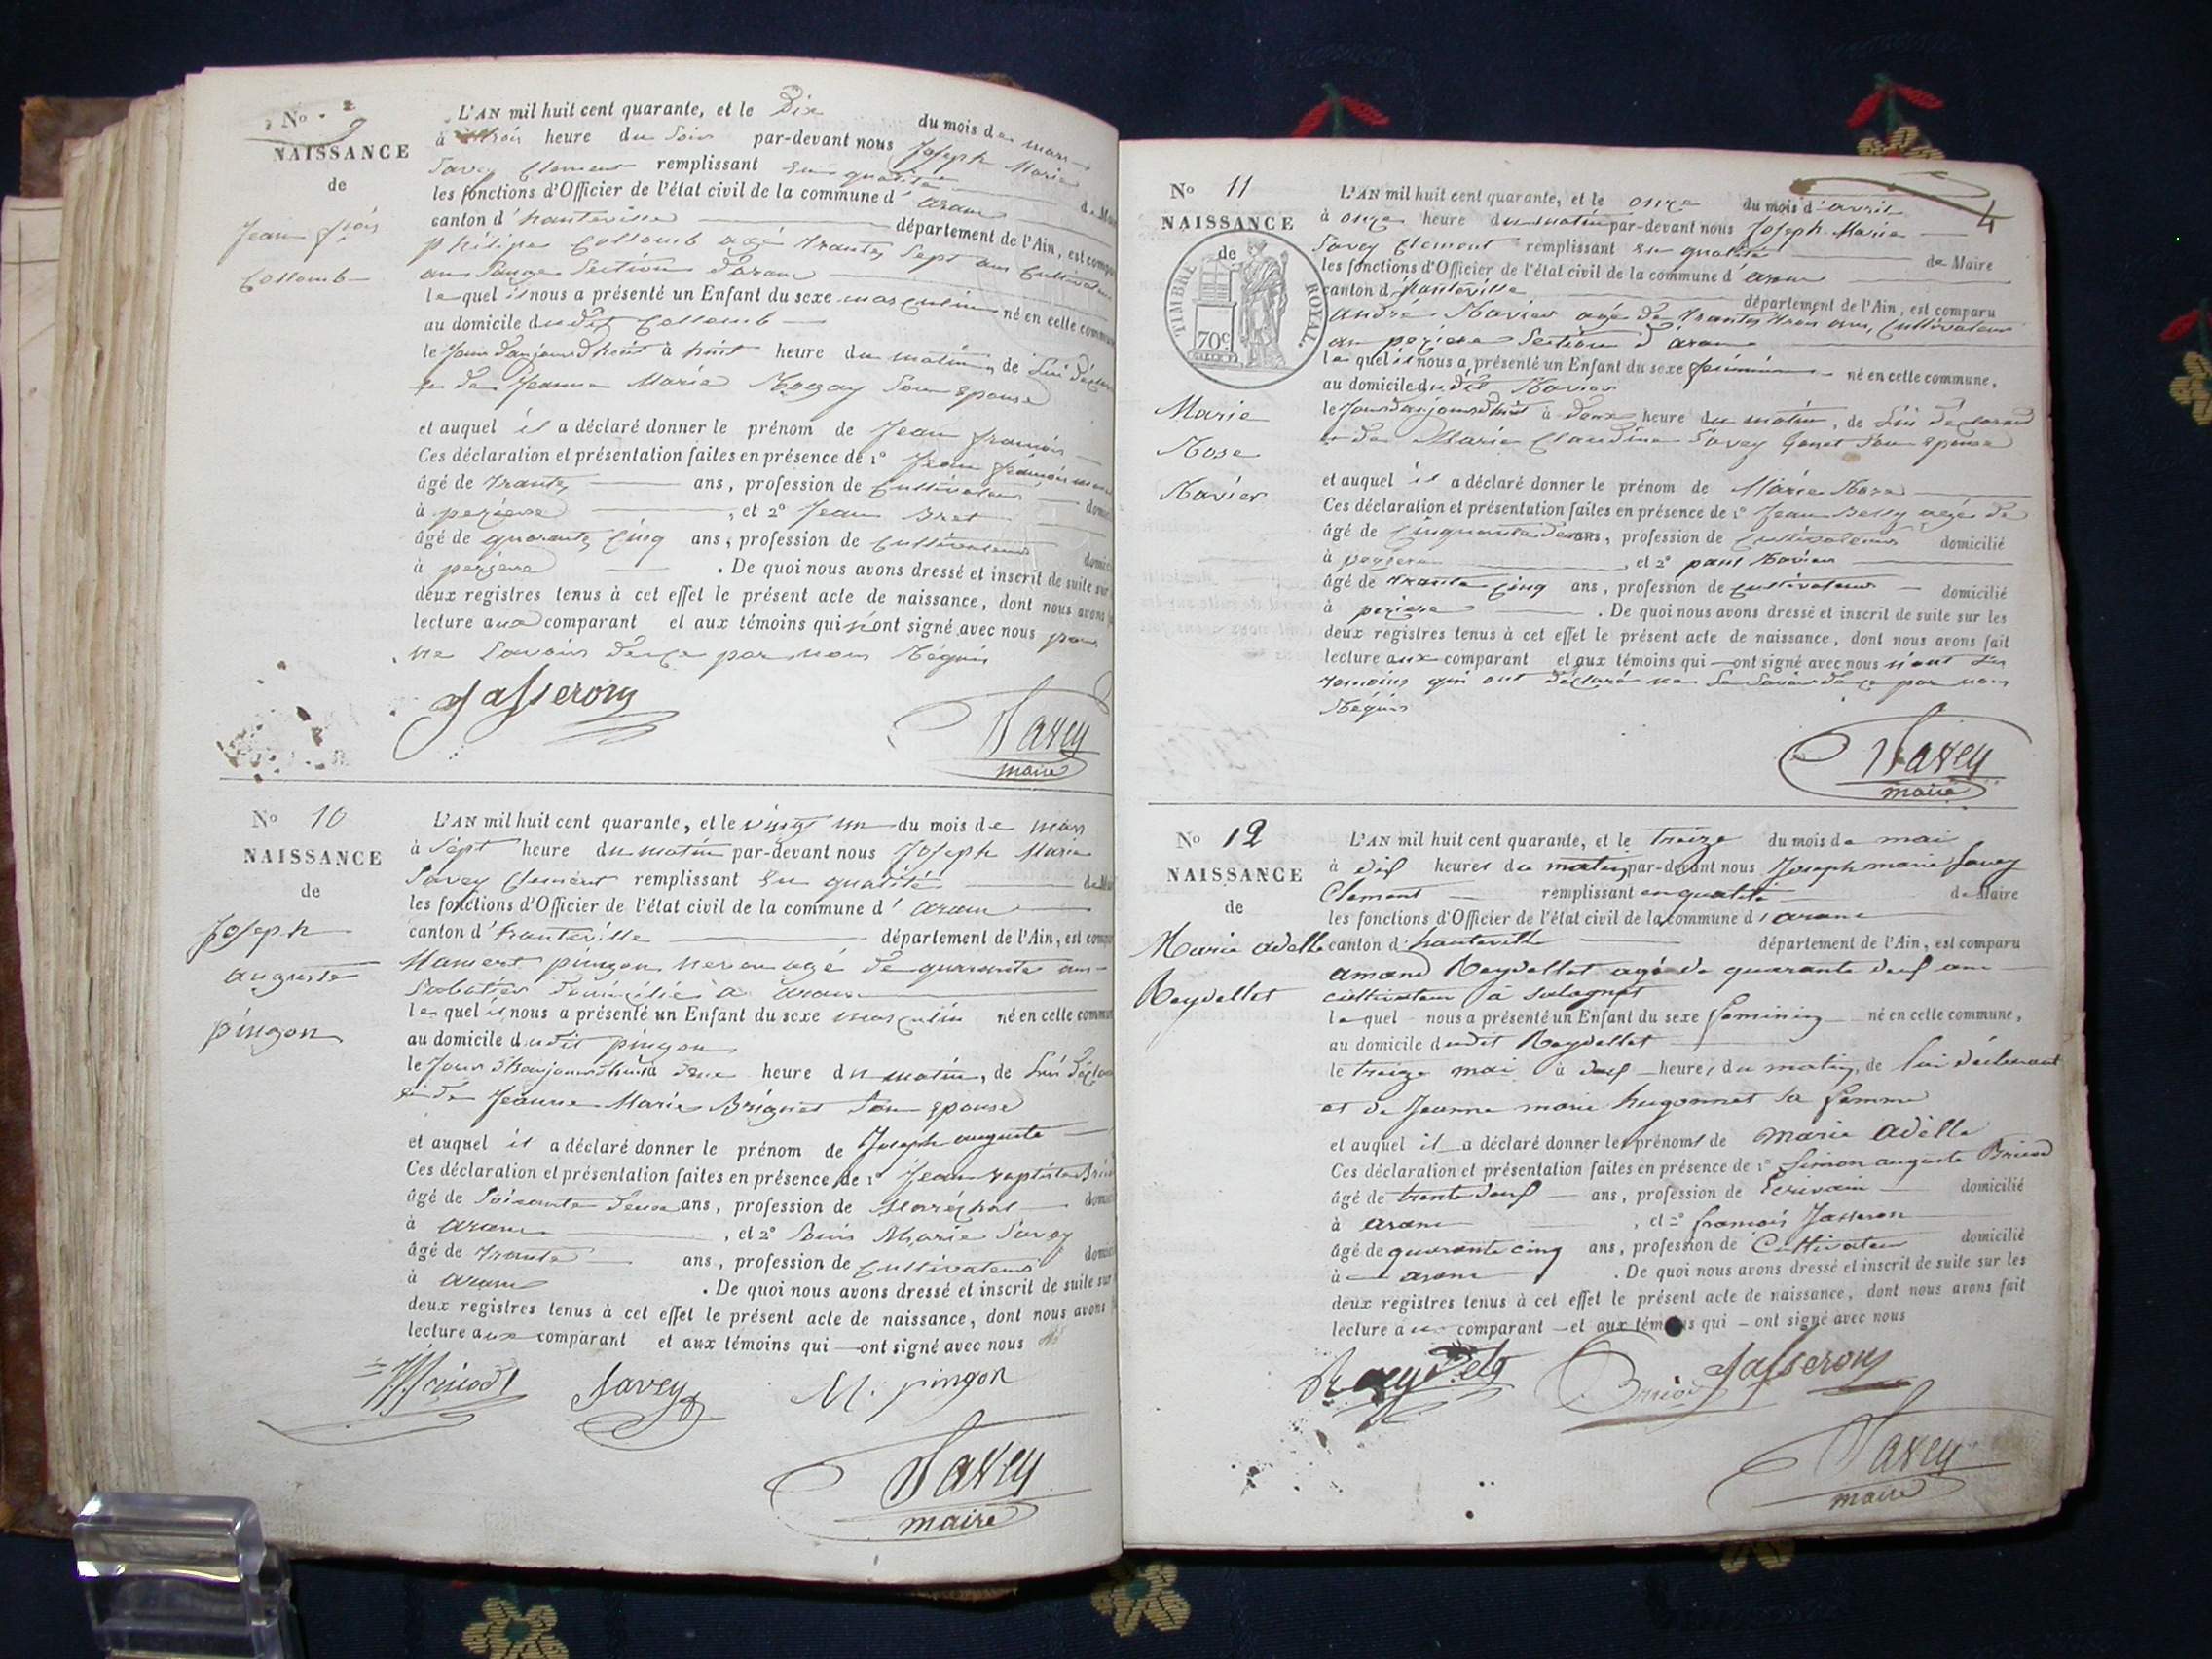 No 9
NAISSANCE
de
Jean fçois
Collomb
L'AN mil huit cent quarante, et le Dix du mois de mars
à trois heure du Soir par-devant nous Joseph Marie
Savey Clement remplissant en qualité de
les fonctions d'Officier de l'état civil de la commune d'aranc
canton d'hauteville département de l'Ain, est
philipe Collomb agé trante Sept ans Cultivateur
Section d'aranc
lequel il nous a présenté un Enfant du sexe masculin né en cette
au domicile dudit Collomb
le Jour daujourdhuit à huit heure du matin, de Lui
et de Jeanne Marie Son Epouse
et auquel il a déclaré donner le prénom de Jean françois
Ces déclaration et présentation faites en présence de 1° Jean françois
âgé de trante ans, profession de Cultivateur
à , et 2° Jean Bret
âgé de quarante Cinq ans, profession de Cultivateur
à . De quoi nous avons dressé et inscrit de suite sur
deux registres tenus à cet effet le présent acte de naissance, dont nous avons
lecture aux comparant et aux témoins qui n'ont signé avec nous pour
ne Savoir de ce par nous Réquis
Jasseron
Savey
maire
No 10
NAISSANCE
de
Joseph
auguste
pingon
L'AN mil huit cent quarante, et le vingt un du mois de mars
à Sept heure du matin par-devant nous Joseph Marie
Savey Clement remplissant en qualité de
les fonctions d'Officier de l'état civil de la commune d'aranc
canton d'hauteville département de l'Ain, est
Mamert pingon agé de quarante ans
Sabotier domicilié à aranc
lequel il nous a présenté un Enfant du sexe masculin né en cette
au domicile dudit pingon
le Jour d'haujourdhui à heure du matin, de Lui
et de Jeanne Marie Son Epouse
et auquel il a déclaré donner le prénom de Joseph auguste
Ces déclaration et présentation faites en présence de 1° Jean baptiste
âgé de Soisante Deux ans, profession de Maréchal
à aranc , et 2° Marie Savey
âgé de trante ans, profession de Cultivateur
à aranc . De quoi nous avons dressé et inscrit de suite sur
deux registres tenus à cet effet le présent acte de naissance, dont nous avons
lecture aux comparant et aux témoins qui ont signé avec nous
Savey M. pingon
Savey
maire
4
No 11
NAISSANCE
de
TIMBRE ROYAL.
70c
Marie
Rose
Ravier
L'AN mil huit cent quarante, et le onze du mois d'avril
à onze heure du matin par-devant nous Joseph Marie
Savey Clement remplissant en qualité de Maire
les fonctions d'Officier de l'état civil de la commune d'aranc
canton d'hauteville département de l'Ain, est comparu
andré Ravier agé de trante trois ans, Cultivateur
Section d'aranc
lequel il nous a présenté un Enfant du sexe féminin né en cette commune,
au domicile dudit Ravier
le Jour daujourdhuit à deux heure du matin, de Lui déclarant
et de Marie Claudine Savey Son Epouse
et auquel il a déclaré donner le prénom de Marie Rose
Ces déclaration et présentation faites en présence de 1° Jean agé de
âgé de Cinquante ans, profession de Cultivateur domicilié
à , et 2° paul Ravier
âgé de trante Cinq ans, profession de Cultivateur domicilié
à . De quoi nous avons dressé et inscrit de suite sur les
deux registres tenus à cet effet le présent acte de naissance, dont nous avons fait
lecture aux comparant et aux témoins qui ont signé avec nous n'ont
temoins qui ont déclaré ne Savoir de ce par nous
Réquis
Savey
maire
No 12
NAISSANCE
de
Marie adelle
Reydellet
L'AN mil huit cent quarante, et le treize du mois de mai
à dix heures du matin par-devant nous Joseph marie Savey
Clement remplissant en qualité de Maire
les fonctions d'Officier de l'état civil de la commune d'aranc
canton d'hauteville département de l'Ain, est comparu
amand Reydellet agé de quarante ans
cultivateur à
lequel nous a présenté un Enfant du sexe feminin né en cette commune,
au domicile dudit Reydellet
le treize mai à heures du matin, de lui déclarant
et de Jeanne marie hugonnet sa femme
et auquel il a déclaré donner les prénoms de marie adelle
Ces déclaration et présentation faites en présence de 1° Simon auguste
âgé de trente ans, profession de Ecrivain domicilié
à aranc , et 2° françois Jasseron
âgé de quarante cinq ans, profession de Cultivateur domicilié
à aranc . De quoi nous avons dressé et inscrit de suite sur les
deux registres tenus à cet effet le présent acte de naissance, dont nous avons fait
lecture au comparant et aux témoins qui ont signé avec nous
Jasseron
Savey
maire